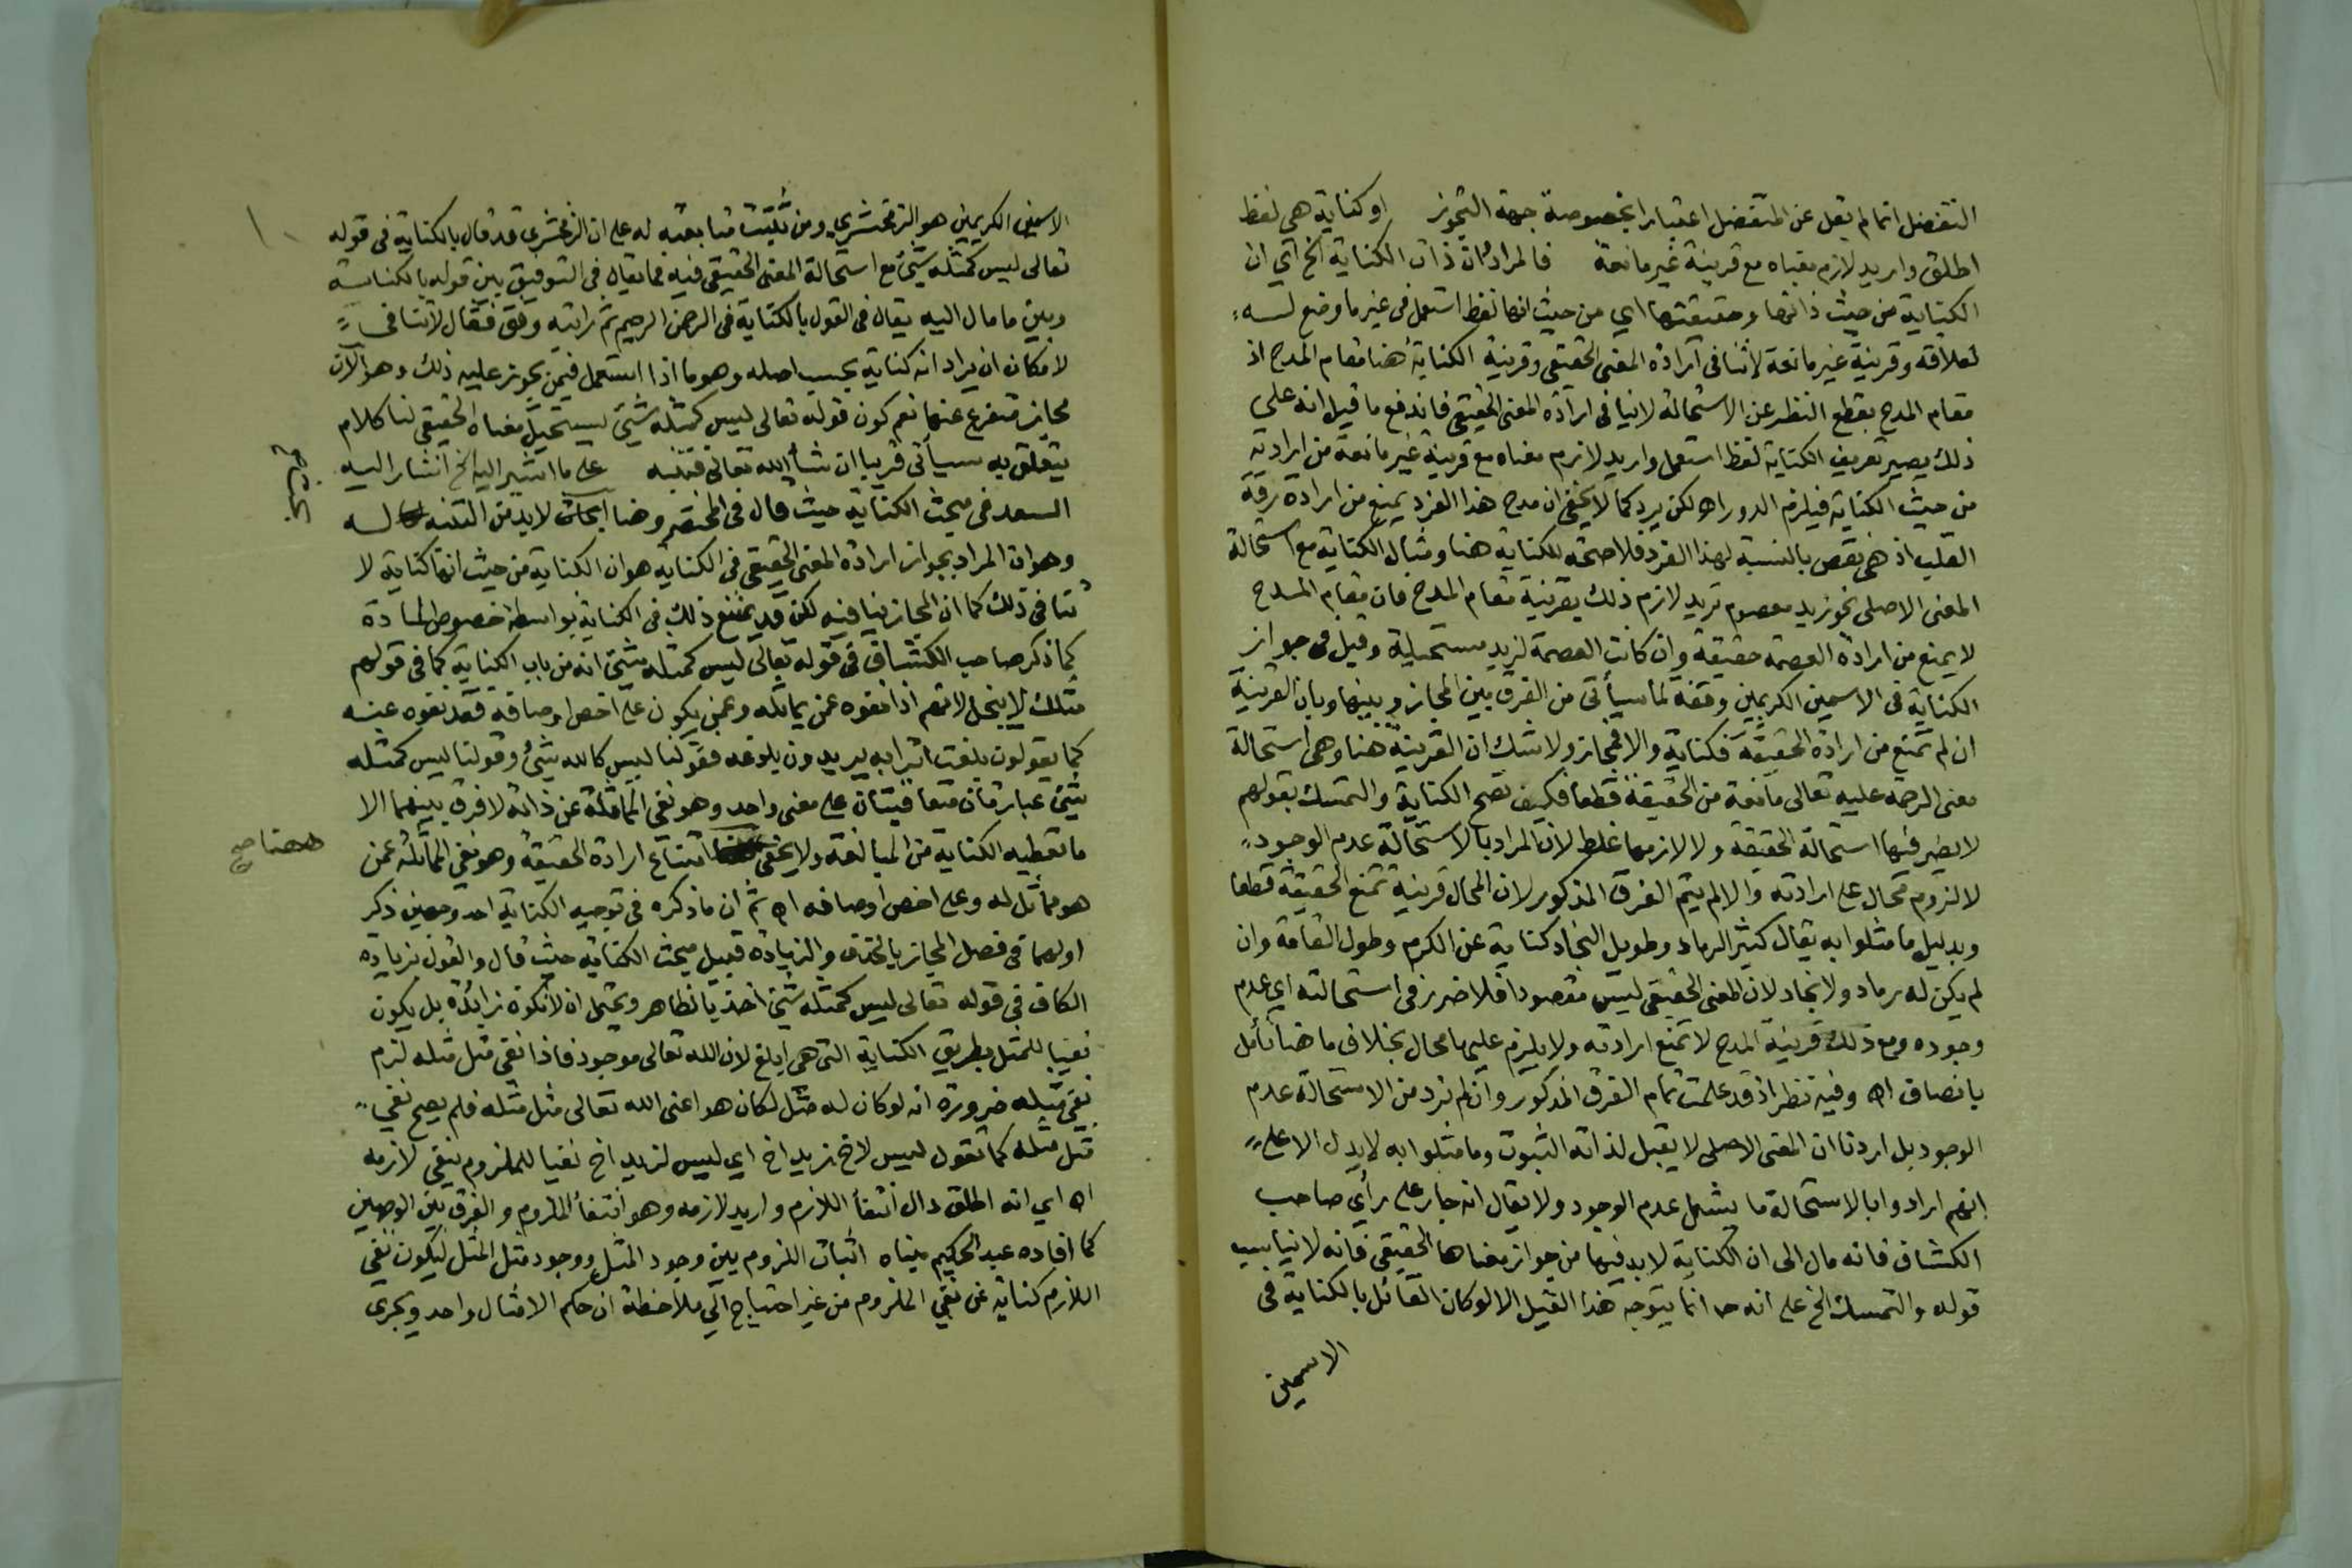 التفضل انما لم يقل عن المتفضل اعتبارا بخصوصة جهة التجوز او كناية هي لفظ
اطلق واريد لازم معناه مع قرينة غير مانعة فالمراد ان ذات الكناية الخ اي ان
الكناية من حيث ذاتها وحقيقتها اي من حيث انها لفظ استعمل في غير ما وضع له
لعلاقة وقرينة غير مانعة لا تنافي ارادة المعنى الحقيقي وقرينة الكناية هنا مقام المدح اذ
مقام المدح بقطع النظر عن الاستحالة لا ينافي ارادة المعنى الحقيقي فاندفع ما قيل انه على
ذلك يصير تعريف الكناية لفظ استعمل واريد لازم معناه مع قرينة غير مانعة من ارادته
من حيث الكناية فيلزم الدور اه لكن يرد كما لا يخفى ان مدح هذا الفرد يمنع من ارادة رقة
القلب اذ هي نقص بالنسبة لهذا الفرد فلا صحة للكناية هنا ومثال الكناية مع استحالة
المعنى الاصلي نحو زيد معصوم تريد لازم ذلك بقرينة مقام المدح فان مقام المدح
لا يمنع من ارادة العصمة حقيقة وان كانت العصمة لزيد مستحيلة وقيل في جواز
الكناية في الاسمين الكريمين وقفة لما سيأتي من الفرق بين المجاز وبينها وبان القرينة
ان لم تمنع من ارادة الحقيقة فكناية والا فمجاز ولا شك ان القرينة هنا وهي استحالة
معنى الرحمة عليه تعالى مانعة من الحقيقة قطعا فكيف تصح الكناية والتمسك بقولهم
لا يضر فيها استحالة الحقيقة ولا لازمها غلط لان المراد بالاستحالة عدم الوجود
لا لزوم محال على ارادته والا لم يتم الفرق المذكور لان المحال قرينة تمنع الحقيقة قطعا
وبدليل ما مثلوا به يقال كثير الرماد وطويل النجاد كناية عن الكرم وطول القامة وان
لم يكن له رماد ولا نجاد لان المعنى الحقيقي ليس مقصودا فلا ضرر في استحالته اي عدم
وجوده ومع ذلك قرينة المدح لا تمنع ارادته ولا يلزم عليها محال بخلاف ما هنا تأمل
بانصاف اه وفيه نظر اذ قد علمت تمام الفرق المذكور وان لم نرد من الاستحالة عدم
الوجود بل اردنا ان المعنى الاصلي لا يقبل لذاته الثبوت وما مثلوا به لا يدل الا على
انهم ارادوا بالاستحالة ما يشمل عدم الوجود ولا يقال انه جار على رأي صاحب
الكشاف فانه مال الى ان الكناية لا بد فيها من جواز معناها الحقيقي فانه لا يناسب
قوله والتمسك الخ على انه ح انما يتوجه هذا القيل الا لو كان القائل بالكناية في
الاسمين
الاسمين الكريمين هو الزمخشري ومن تثبت متابعته له على ان الزمخشري قد قال بالكناية في قوله
تعالى ليس كمثله شيء مع استحالة المعنى الحقيقي فيه فما يقال في التوفيق بين قوله بالكناية
وبين ما مال اليه يقال في القول بالكناية في الرحمن الرحيم ثم رايته وفق فقال لا تنافي
لامكان ان يراد انه كناية بحسب اصله وهو ما اذا استعمل فيمن يجوز عليه ذلك وهو الآن
مجاز متفرع عنها نعم كون قوله تعالى ليس كمثله شيء يستحيل معناه الحقيقي لنا كلام
يتعلق به سيأتي قريبا ان شأ الله تعالى فتنبه على ما اشير اليه الخ اشار اليه
السعد في مبحث الكناية حيث قال في المختصر وهنا بحث لا بد من التنبه له
وهو ان المراد بجواز ارادة المعنى الحقيقي في الكناية هو ان الكناية من حيث انها كناية لا
تنافي ذلك كما ان المجاز ينافيه لكن قد يمتنع ذلك في الكناية بواسطة خصوص المادة
كما ذكر صاحب الكشاف في قوله تعالى ليس كمثله شيء انه من باب الكناية كما في قولهم
مثلك لا يبخل لانهم اذا نفوه عمن يماثله وعمن يكون على اخص اوصافه فقد نفوه عنه
كما يقولون بلغت اترابه يريدون بلوغه فقولنا ليس كالله شيء وقولنا ليس كمثله
شيء عبارتان متعاقبتان على معنى واحد وهو نفي المماثلة عن ذاته لا فرق بينهما الا
ما تعطيه الكناية من المبالغة ولا يخفى امتناع ارادة الحقيقة وهو نفي المماثلة عمن
ههنا صح
هو مماثل له وعلى اخص اوصافه اه ثم ان ما ذكره في توجيه الكناية احد وجهين ذكر
اولهما في فصل المجاز بالحذف والزيادة قبيل مبحث الكناية حيث قال والقول بزيادة
الكاف في قوله تعالى ليس كمثله شيء اخذ بالظاهر ويحتمل ان لا تكون زائدة بل يكون
نفيا للمثل بطريق الكناية التي هي ابلغ لان الله تعالى موجود فاذا نفي مثل مثله لزم
نفي مثله ضرورة انه لو كان له مثل لكان هو اعنى الله تعالى مثل مثله فلم يصح نفي
مثل مثله كما تقول ليس لاخ زيد اخ اي ليس لزيد اخ نفيا للملزوم بنفي لازمه
اه اي انه اطلق دال انتفأ اللازم واريد لازمه وهو انتفأ الملزوم والفرق بين الوجهين
كما افاده عبد الحكيم مبناه اثبات اللزوم بين وجود المثل ووجود مثل المثل ليكون نفي
اللازم كناية عن نفي الملزوم من غير احتياج الى ملاحظة ان حكم الامثال واحد ويجري